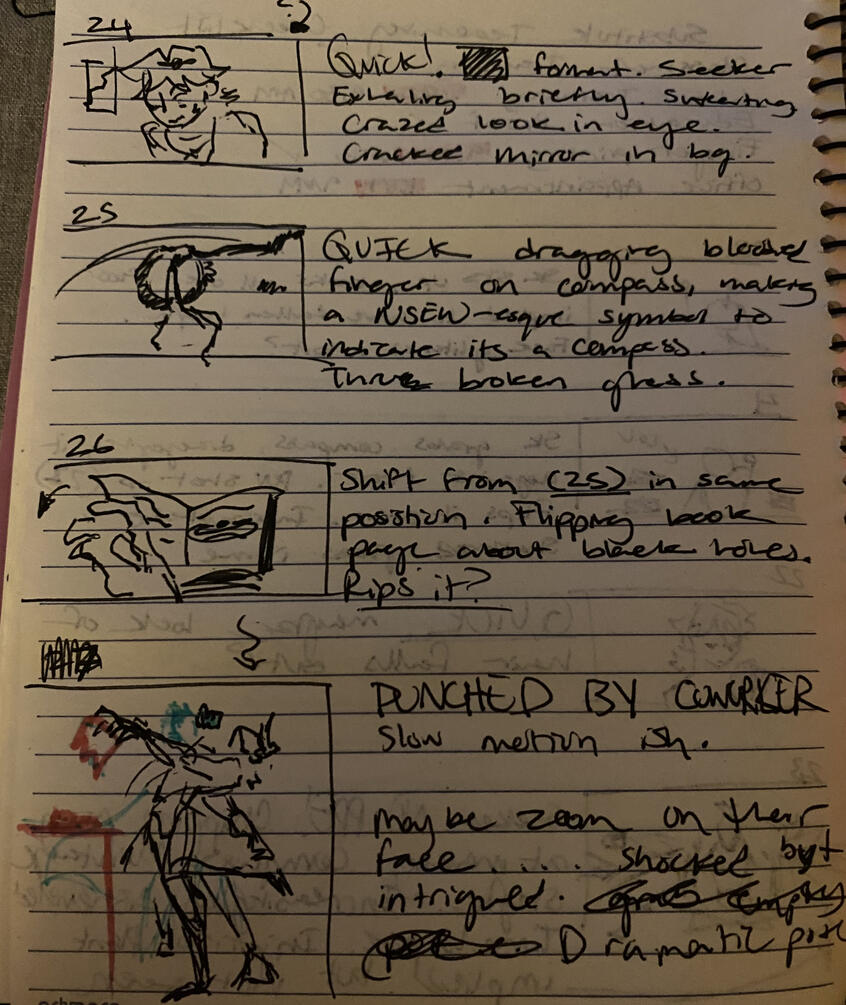 24
Quick! format. Seeker
Exhaling briefly. Snickering
Crazed look in eye.
Cracked mirror in bg.
25
QUICK dragging blooded
finger on compass, making
a NSEW-esque symbol to
indicate its a compass.
Thru broken glass.
26
Shift from (25) in same
position. Flipping book
page about black holes.
Rips it?
PUNCHED BY COWORKER
Slow motion ish.
maybe zoom on their
face.... shocked but
intrigued.
Dramatic pose